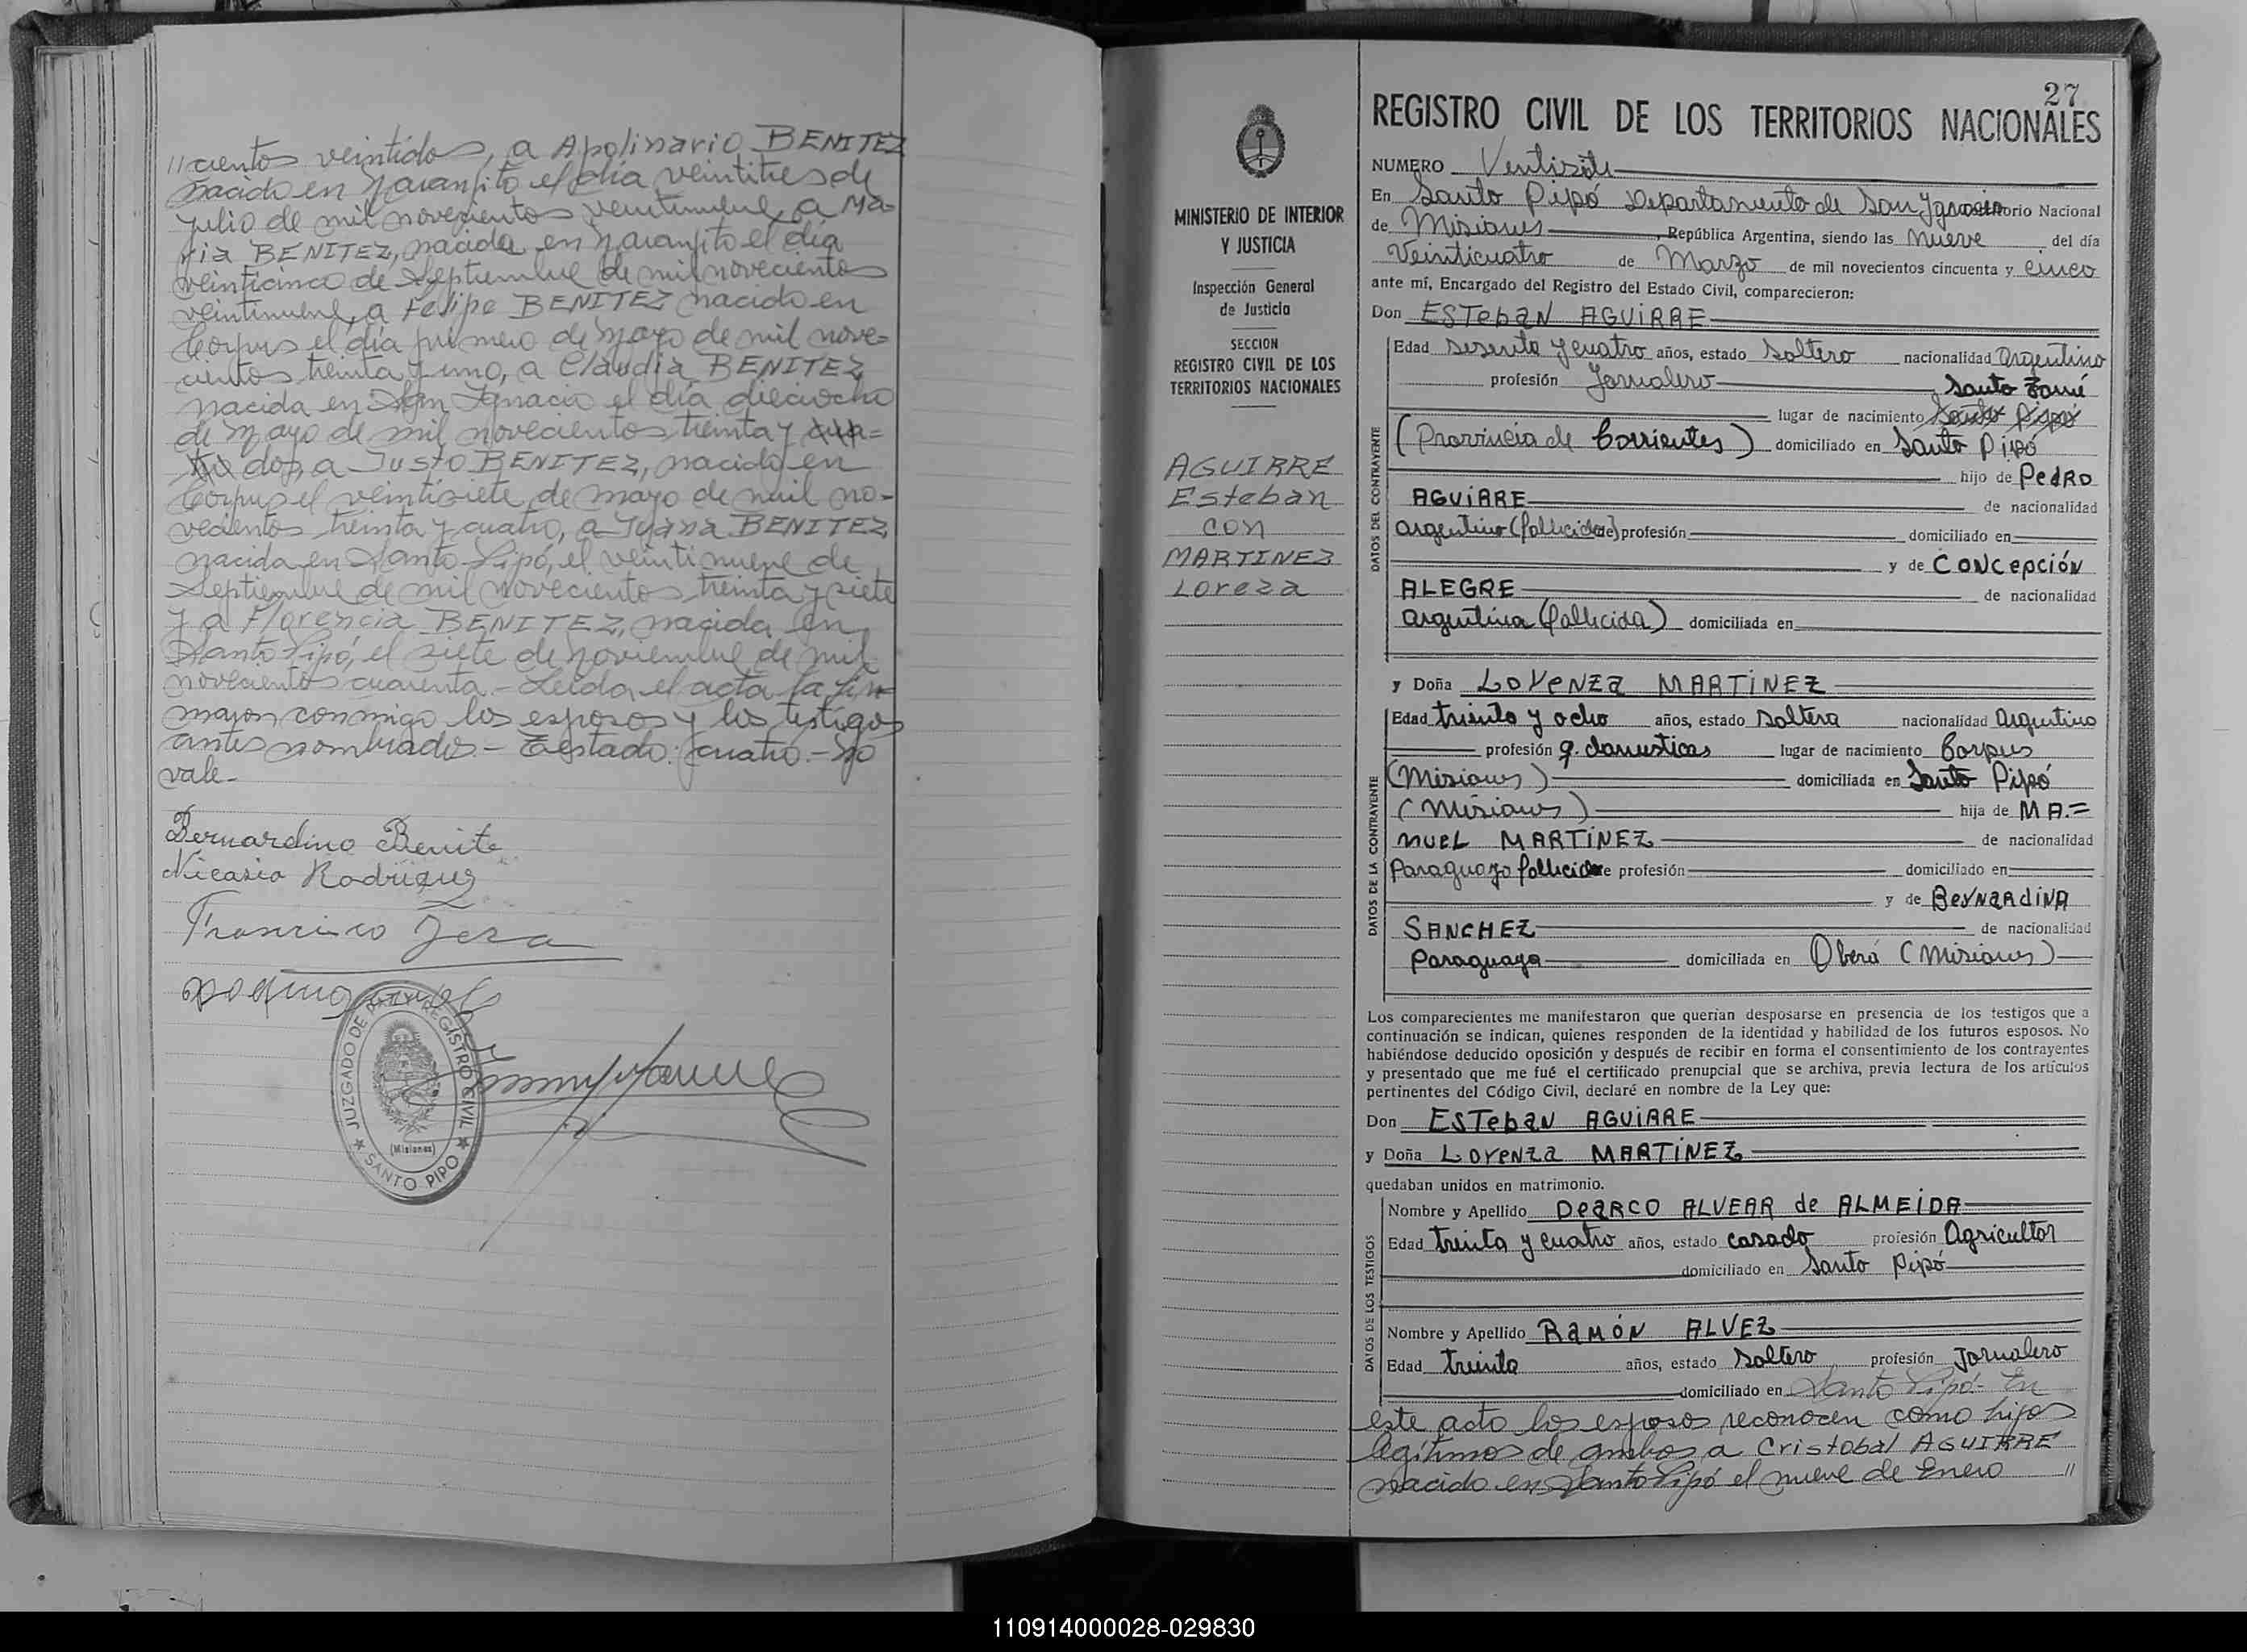 // cientos veintidos, a Apolinario BENITEZ
nacido en Naranjito el día veintitres de
Julio de mil novecientos veintinueve, a Ma-
ria BENITEZ, nacida en Naranjito el día
veinticinco de Septiembre de mil novecientos
veintinueve, a Felipe BENITEZ nacido en
Corpus el día primero de Mayo de mil nove=
cientos treinta y uno, a Claudia BENITEZ
nacida en San Ignacio el día dieciocho
de Mayo de mil novecientos treinta y
dos, a Justo BENITEZ, nacido en
Corpus el veintisiete de mayo de mil no-
vecientos treinta y cuatro, a Juana BENITEZ
nacida en Santo Pipó, el veintinueve de
Septiembre de mil novecientos treinta y siete
y a Florencia BENITEZ, nacida en
Santo Pipó, el siete de Noviembre de mil
novecientos cuarenta.- Leída el acta la fir=
maron conmigo los esposos y los testigos
antes nombrados.- Testado: cuatro.- No
vale.-
Bernardino Benite
Nicasia Rodriguez
Francisco
JUZGADO DE PAZ Y REGISTRO CIVIL
(Misiones)
SANTO PIPO
MINISTERIO DE INTERIOR
Y JUSTICIA
Inspección General
de Justicia
SECCION
REGISTRO CIVIL DE LOS
TERRITORIOS NACIONALES
AGUIRRE
Esteban
con
MARTINEZ
Loreza
27
REGISTRO CIVIL DE LOS TERRITORIOS NACIONALES
NUMERO Ventisiete
En Santo Pipó Departamento de San Ignacio Territorio Nacional
de Misiones, República Argentina, siendo las Nueve del día
Veinticuatro de Marzo de mil novecientos cincuenta y cinco
ante mí, Encargado del Registro del Estado Civil, comparecieron:
Don ESTebaN AGUiRRE
DATOS DEL CONTRAYENTE
Edad Sesenta y cuatro años, estado Soltero nacionalidad Argentino
profesión Jornalero Santo Tomé
lugar de nacimiento Santo Pipó
(Provincia de Corrientes) domiciliado en Santo Pipó
hijo de PedRO
AGUiRRE de nacionalidad
Argentino (fallecido) de profesión domiciliado en
y de CONcepción
ALEGRE de nacionalidad
Argentina (fallecida) domiciliada en
y Doña LOreNZa MARTiNEZ
DATOS DE LA CONTRAYENTE
Edad treinta y ocho años, estado Soltera nacionalidad Argentino
profesión q. domesticos lugar de nacimiento Corpus
(Misiones) domiciliada en Santo Pipó
(Misiones) hija de MA.=
NUEL MARTiNEZ de nacionalidad
Paraguayo fallecido de profesión domiciliado en
y de BerNaRdiNA
SANCHEZ de nacionalidad
Paraguaya domiciliada en Oberá (Misiones)
Los comparecientes me manifestaron que querían desposarse en presencia de los testigos que a
continuación se indican, quienes responden de la identidad y habilidad de los futuros esposos. No
habiéndose deducido oposición y después de recibir en forma el consentimiento de los contrayentes
y presentado que me fué el certificado prenupcial que se archiva, previa lectura de los artículos
pertinentes del Código Civil, declaré en nombre de la Ley que:
Don ESTebaN AGUiRRE
y Doña LOreNZa MARTiNEZ
quedaban unidos en matrimonio.
DATOS DE LOS TESTIGOS
Nombre y Apellido DeaRCO ALVEAR de ALMEiDA
Edad treinta y cuatro años, estado casado profesión Agricultor
domiciliado en Santo Pipó
Nombre y Apellido RaMóN ALVEZ
Edad treinta años, estado Soltero profesión Jornalero
domiciliado en Santo Pipó.- En
este acto los esposos reconocen como hijos
legítimos de ambos a Cristobal AGUIRRE
nacido en Santo Pipó el nueve de Enero //
110914000028-029830